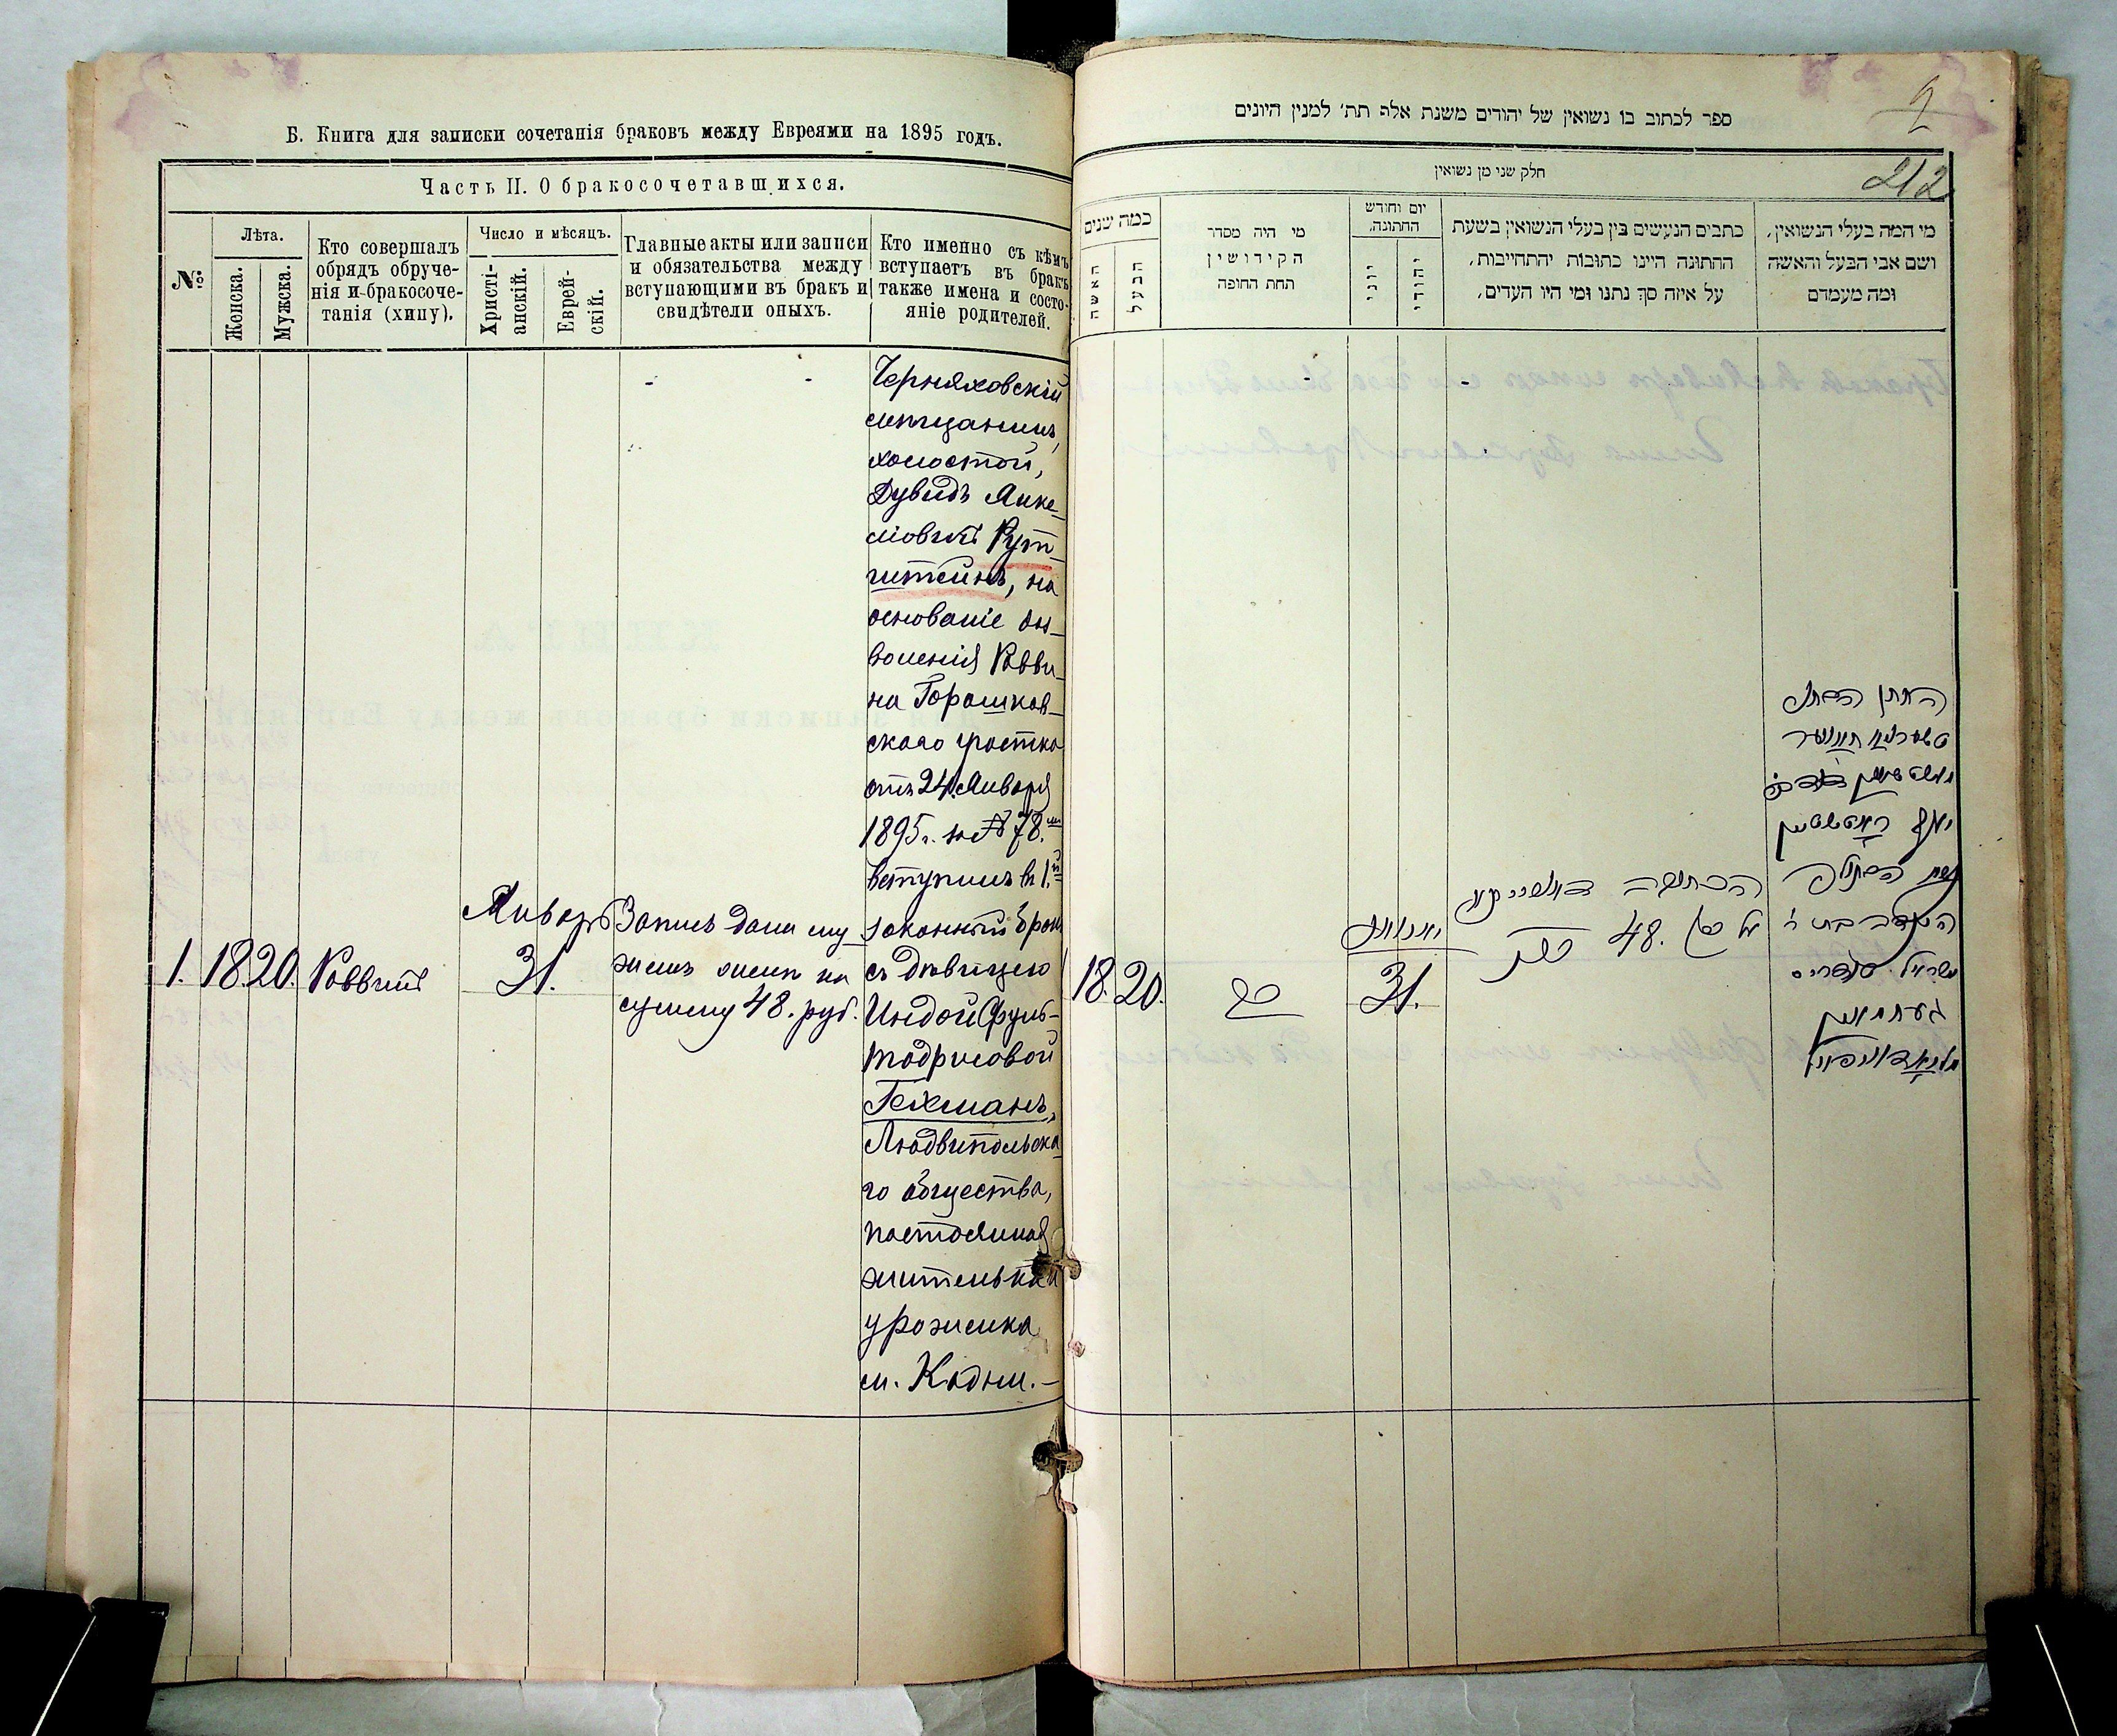 Б. Книга для записки сочетанія браковъ между Евреями на 1895 годъ.
Часть II. О бракосочетавшихся.
№
Лѣта.
Женска.
Мужска.
Кто совершалъ
обрядъ обруче-
нія и бракосоче-
танія (хипу).
Число и мѣсяцъ.
Христі-
анскій.
Еврей-
скій.
Главные акты или записи
и обязательства между
вступающими въ бракъ и
свидѣтели оныхъ.
Кто именно съ кѣмъ
вступаетъ въ бракъ
также имена и состо-
яніе родителей.
1.
18.
20.
Раввинъ
Январь
31.
Запись дана му
жемъ жене на
сумму 48. руб.
Черняховскій
мещанинъ,
холостой,
Дувидъ Янке-
ловичъ Рут-
штейнъ, на
основаніе
Равви-
на Горошков-
скаго участка
отъ 24 Января
1895 г. за № 78.
вступилъ въ 1.й
законный бракъ
съ девицею
Индой Сруль-
Годрисовой
Гехманъ,
Людвипольска
го общества,
постоянная
жителька
уроженка
м. Кодни. -
ספר לכתוב בו נשואין של יהודים משנת אלף תת׳ למנין היונים
2
212
חלק שני מן נשואין
כמה שנים
האשה
הבעל
מי היה מסדר
הקידושין
תחת החופה
יום וחודש
החתונה,
יוני
יהודי
כתבים הנעשים בין בעלי הנשואין בשעת
החתונה היינו כתובות יהתחייבות,
על איזה סך נתנו ומי היו העדים,
מי המה בעלי הנשואין,
ושם אבי הבעל והאשה
ומה מעמדם
18.
20.
רב
יאנואר
31.
הכתובה
על סך 48. רובל
החתן הבחור